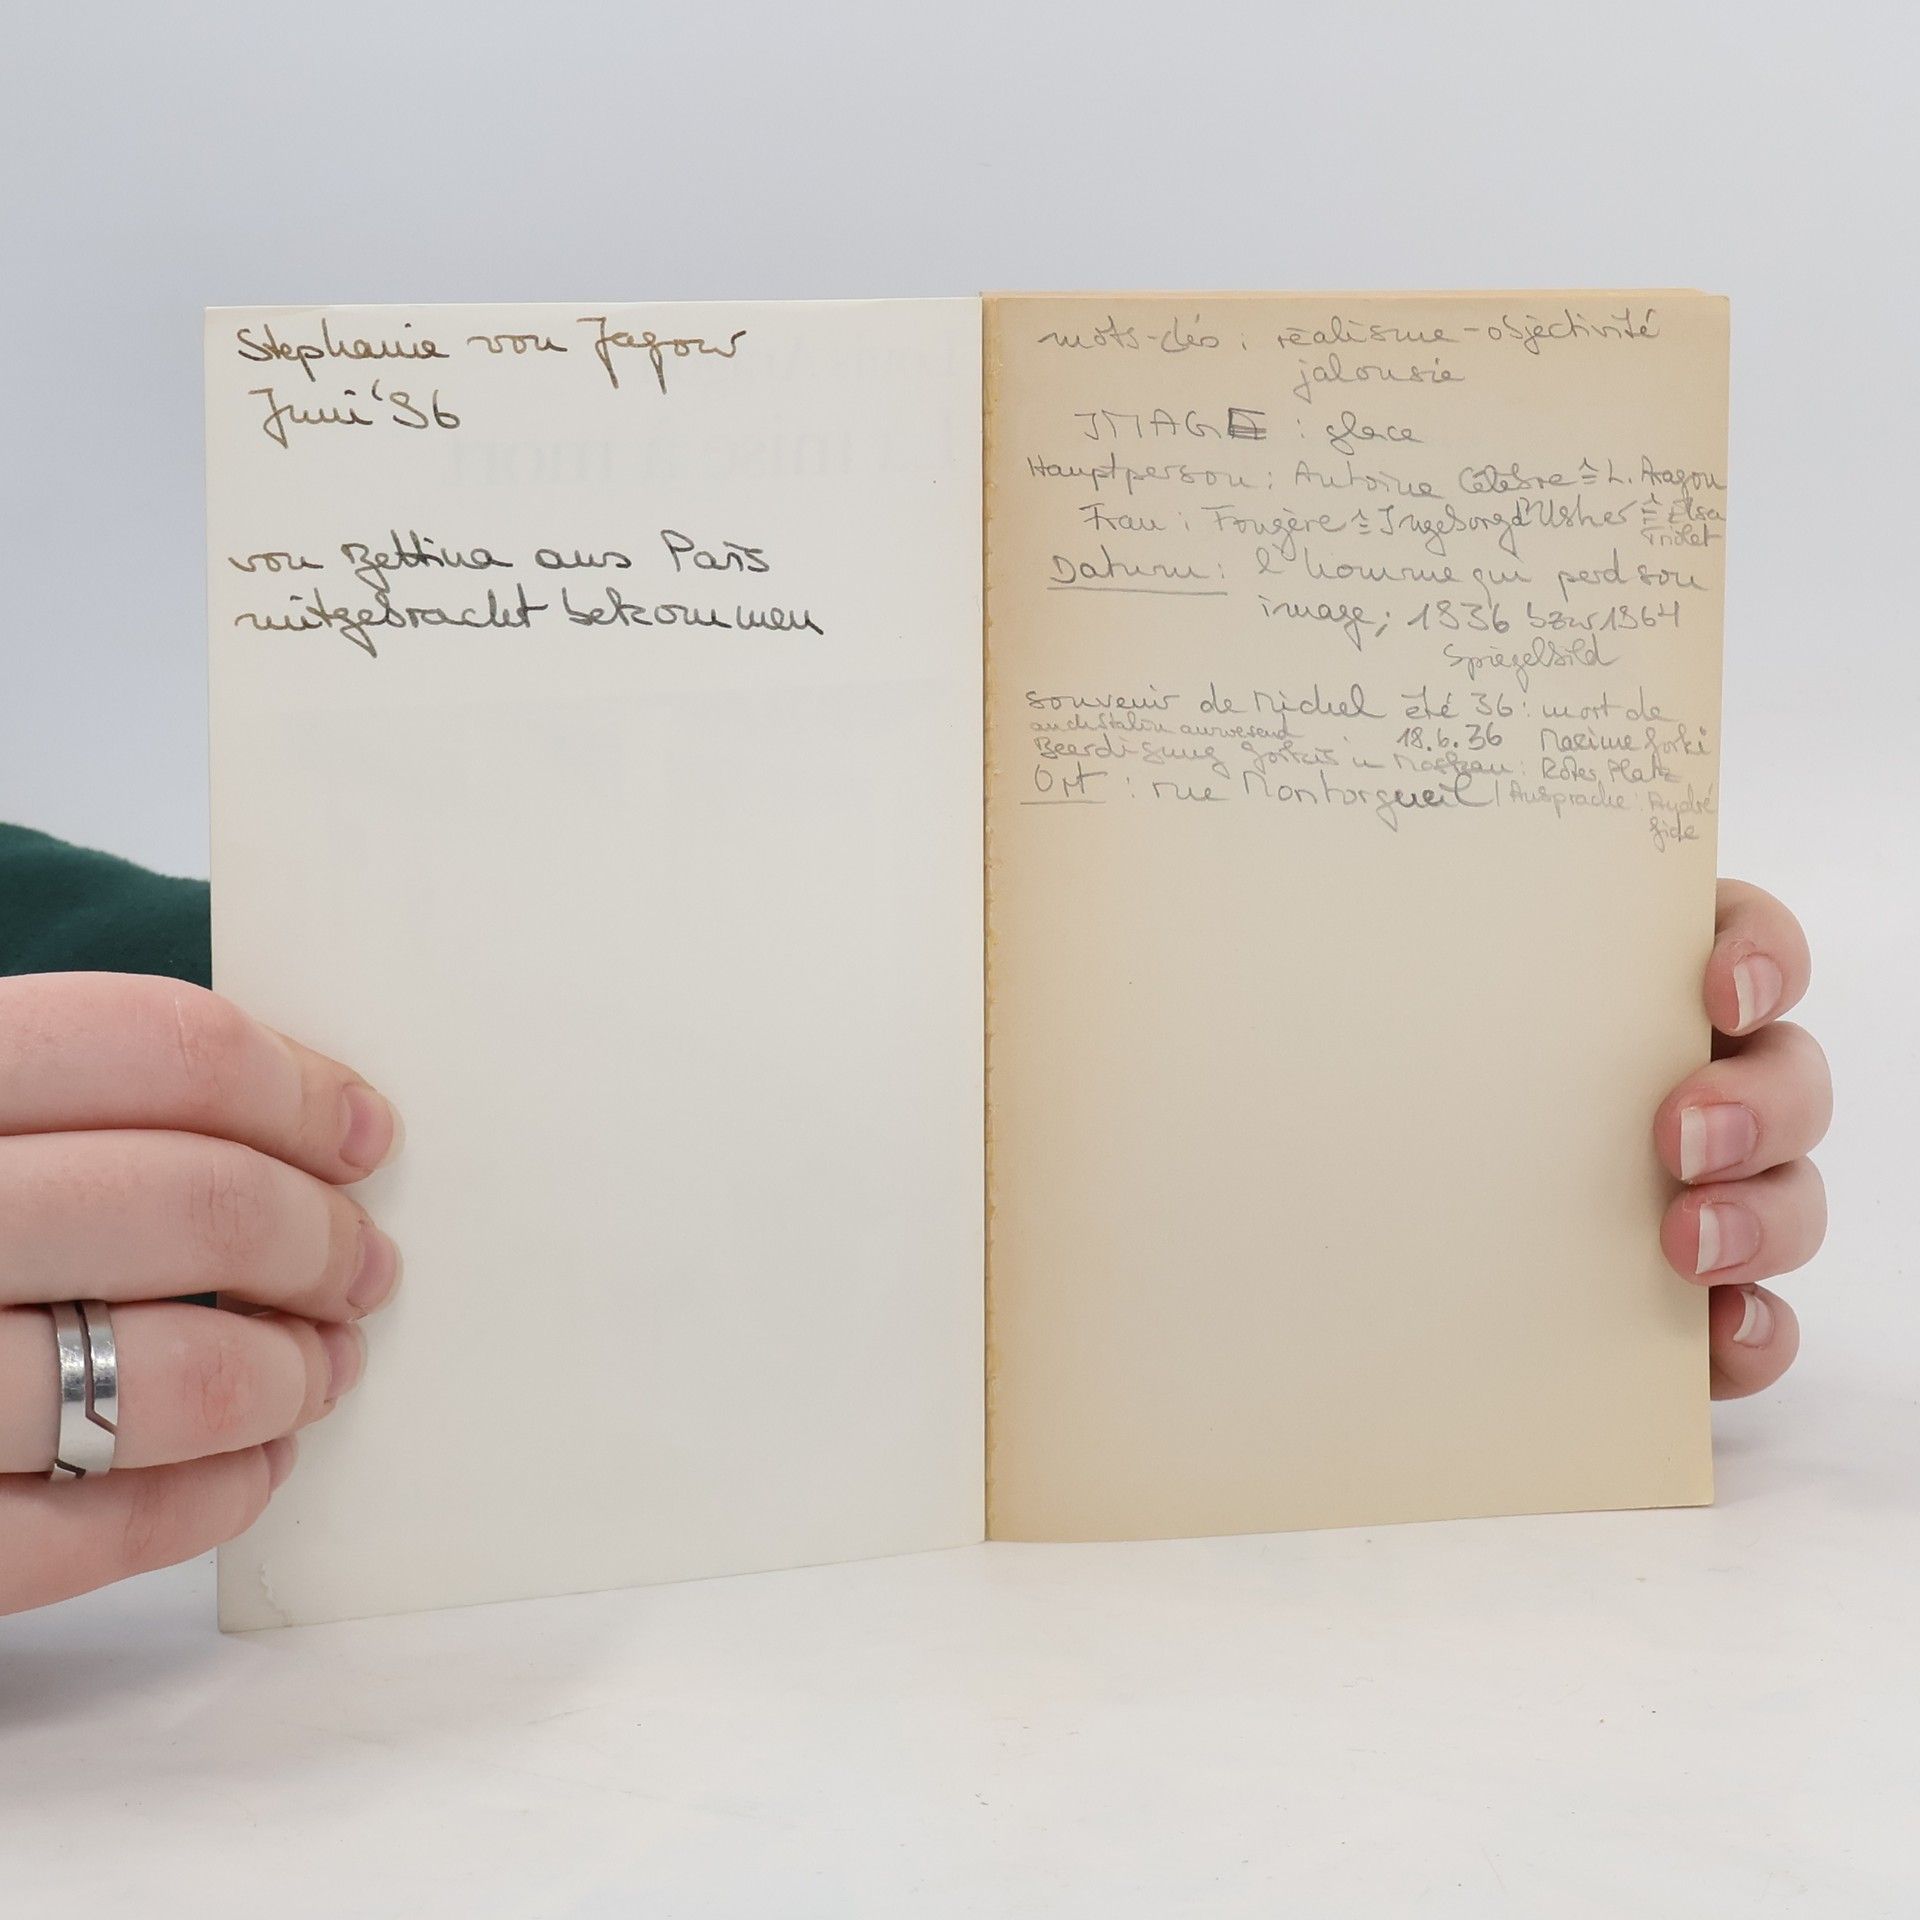 Stephanie von Jagow
Juni '96
von Bettina aus Paris
mitgebracht bekommen
mots-clés : réalisme - objectivité
jalousie
IMAGE : glace
Hauptperson : Antoine Célèbre ≙ L. Aragon
Frau : Fougère ≙ Ingeborg d'Usher ≙ Elsa
Triolet
Datum : l'homme qui perd son
image; 1936 bzw 1964
Spiegelbild
souvenir de Michel été 36 : mort de
auch Stalin anwesend 18.6.36 Maxime Gorki
Beerdigung Gorkis in Moskau : Roter Platz
Ort : rue Montorgueil / Ansprache : André
Gide
la mise à mort